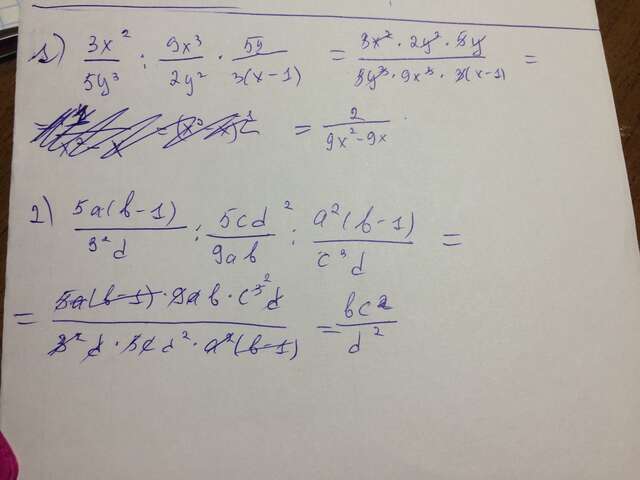 1) 3x²/5y³ : 9x³/2y² · 5y/3(x-1) = 3x² · 2y² · 5y/5y³ · 9x³ · 3(x-1) =
= 2/9x²-9x
2) 5a(b-1)/3²d : 5cd²/9ab : a²(b-1)/c³d =
= 5a(b-1) · 9ab · c³d/3²d · 5cd² · a²(b-1) = bc²/d²